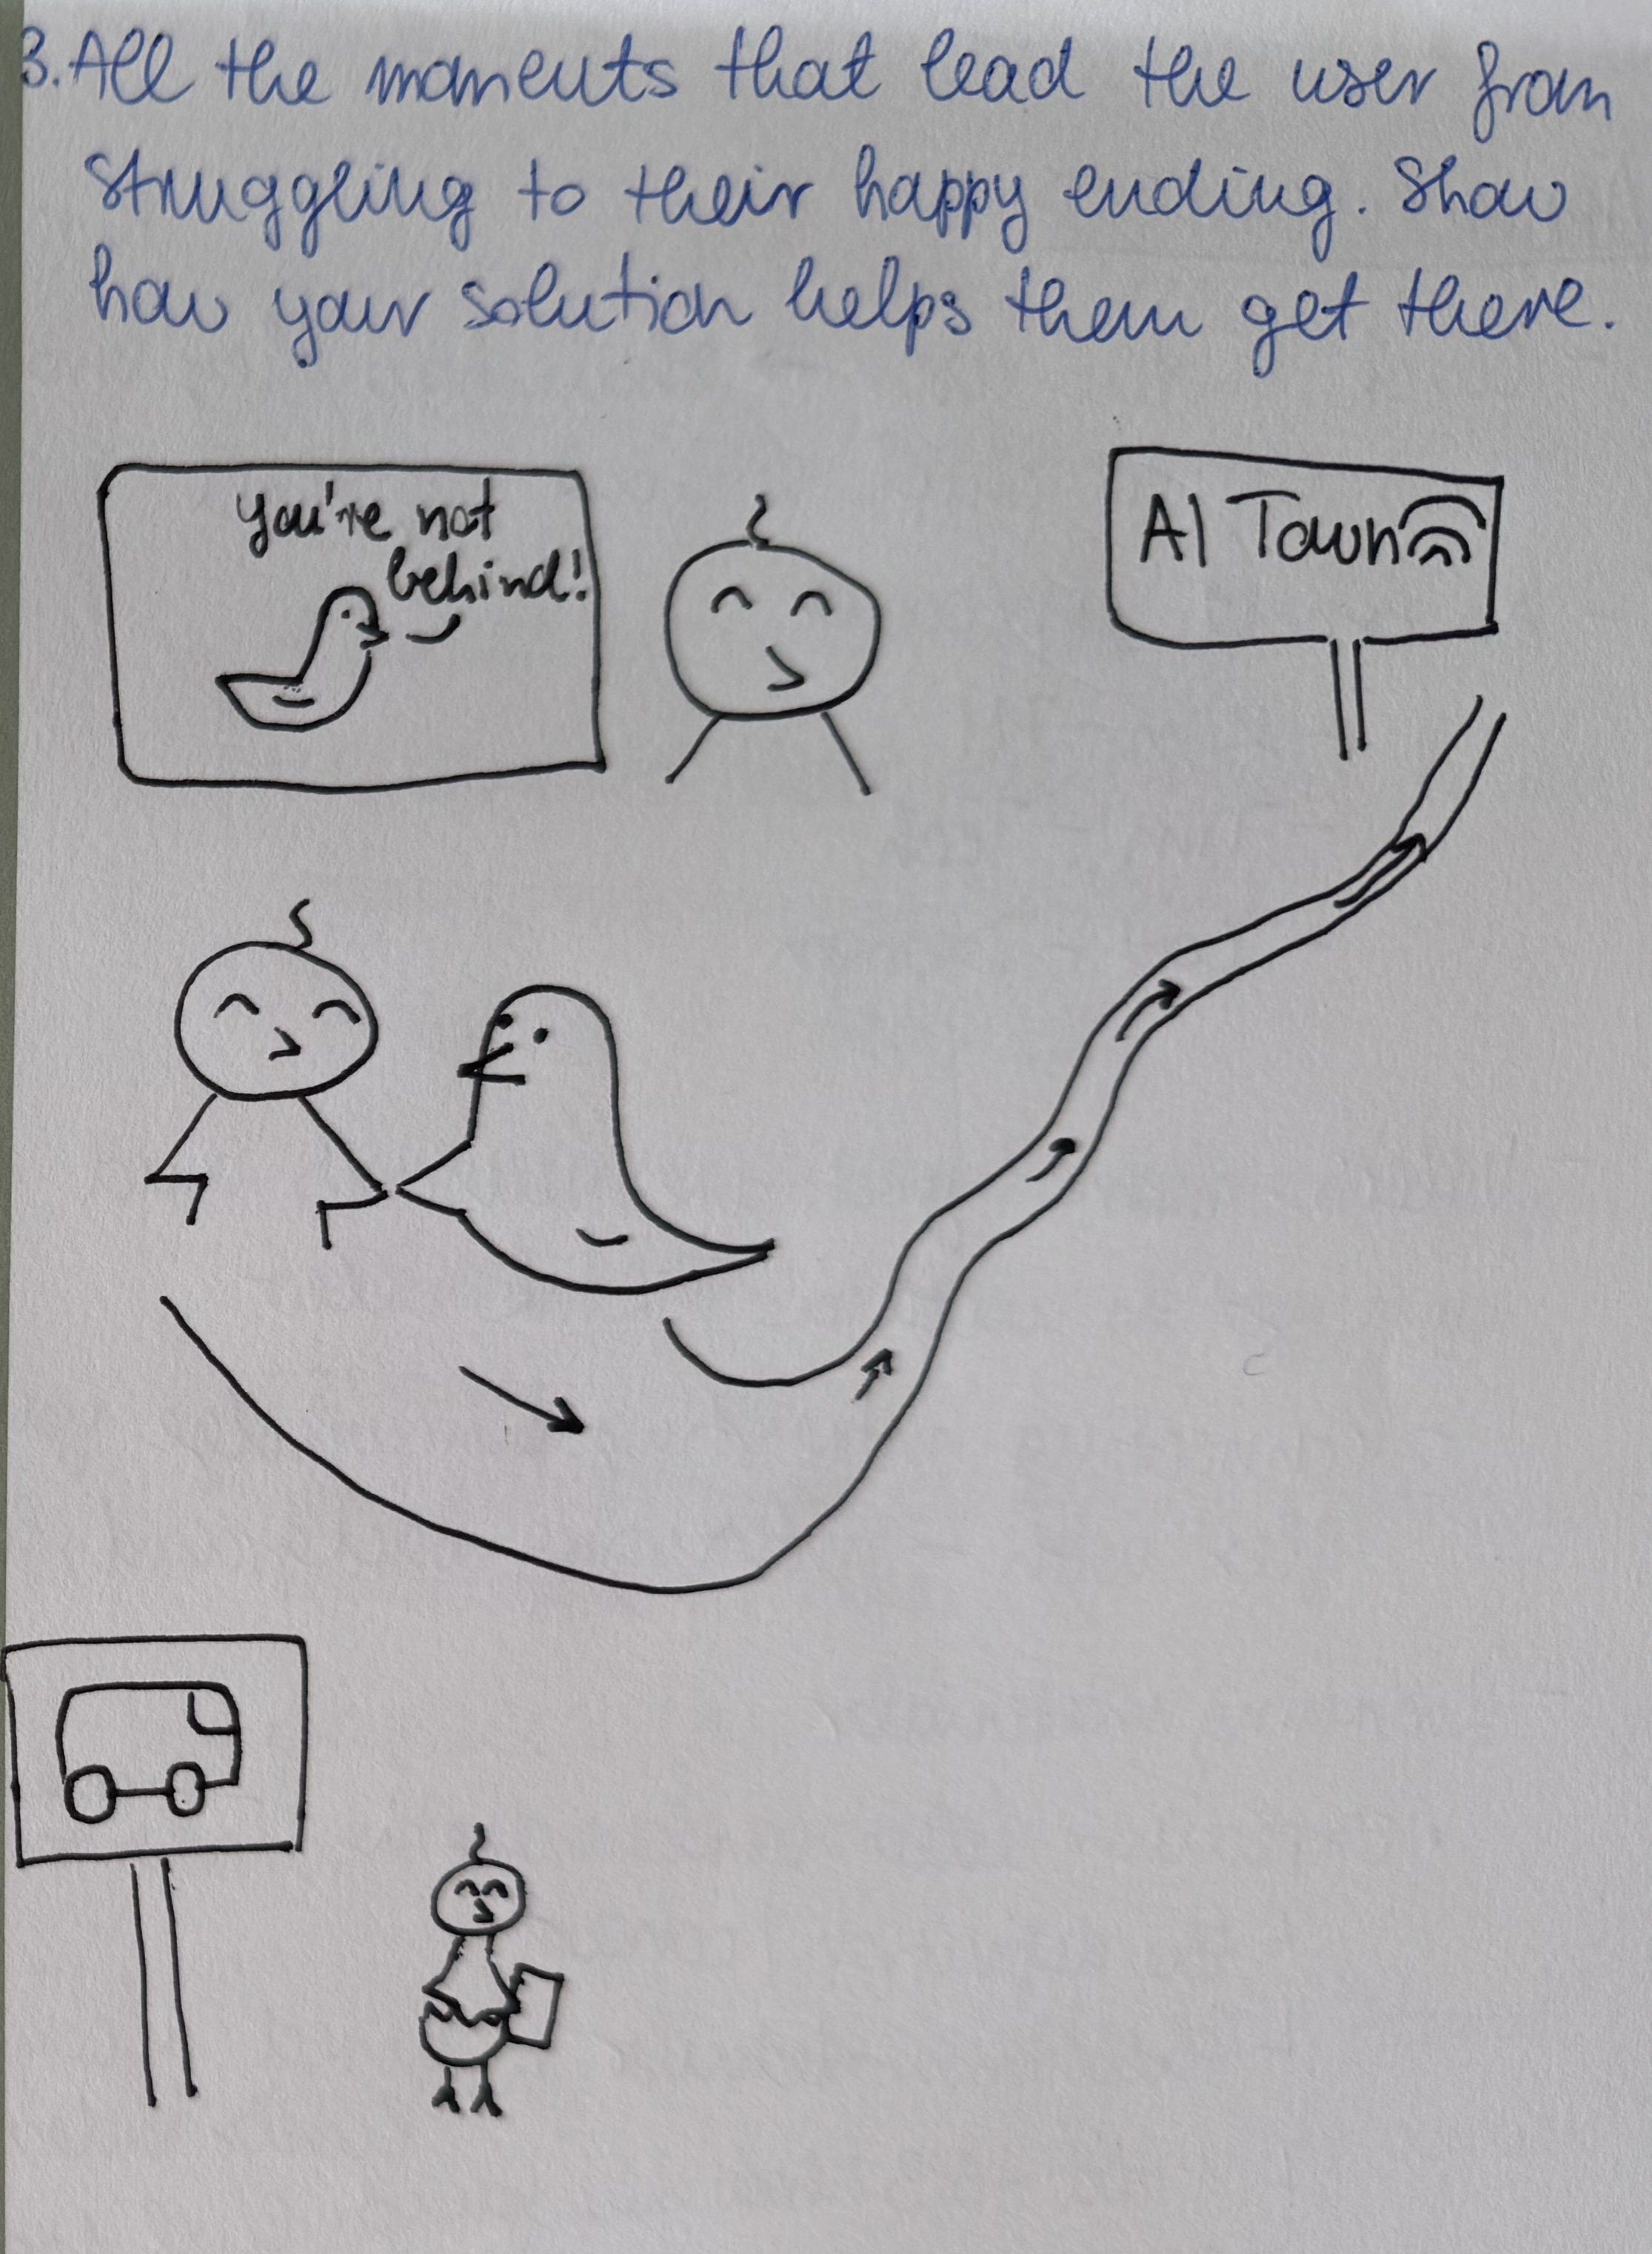 3. All the moments that lead the user from
struggling to their happy ending. Show
how your solution helps them get there.
You're not
behind!
AI Town